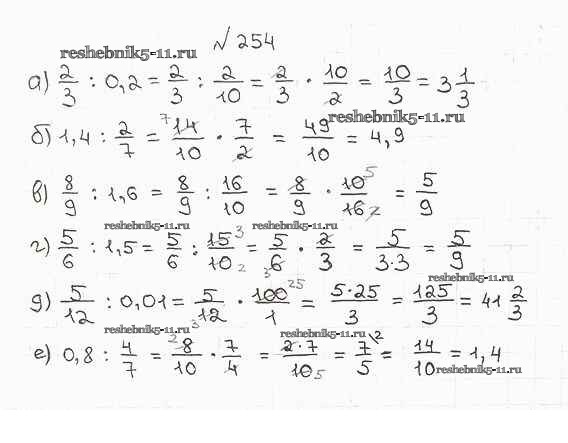 № 254
reshebnik5-11.ru
а) 2/3 : 0,2 = 2/3 : 2/10 = 2/3 · 10/2 = 10/3 = 3 1/3
reshebnik5-11.ru
б) 1,4 : 2/7 = 7 14/10 · 7/2 = 49/10 = 4,9
в) 8/9 : 1,6 = 8/9 : 16/10 = 8/9 · 10 5/16 2 = 5/9
reshebnik5-11.ru reshebnik5-11.ru
г) 5/6 : 1,5 = 5/6 : 15 3/10 2 = 5/6 3 · 2/3 = 5/3·3 = 5/9
reshebnik5-11.ru
д) 5/12 : 0,01 = 5/12 3 · 100 25/1 = 5·25/3 = 125/3 = 41 2/3
reshebnik5-11.ru reshebnik5-11.ru
е) 0,8 : 4/7 = 2 8/10 · 7/4 = 2·7/10 5 = 7\2/5 = 14/10 = 1,4
reshebnik5-11.ru